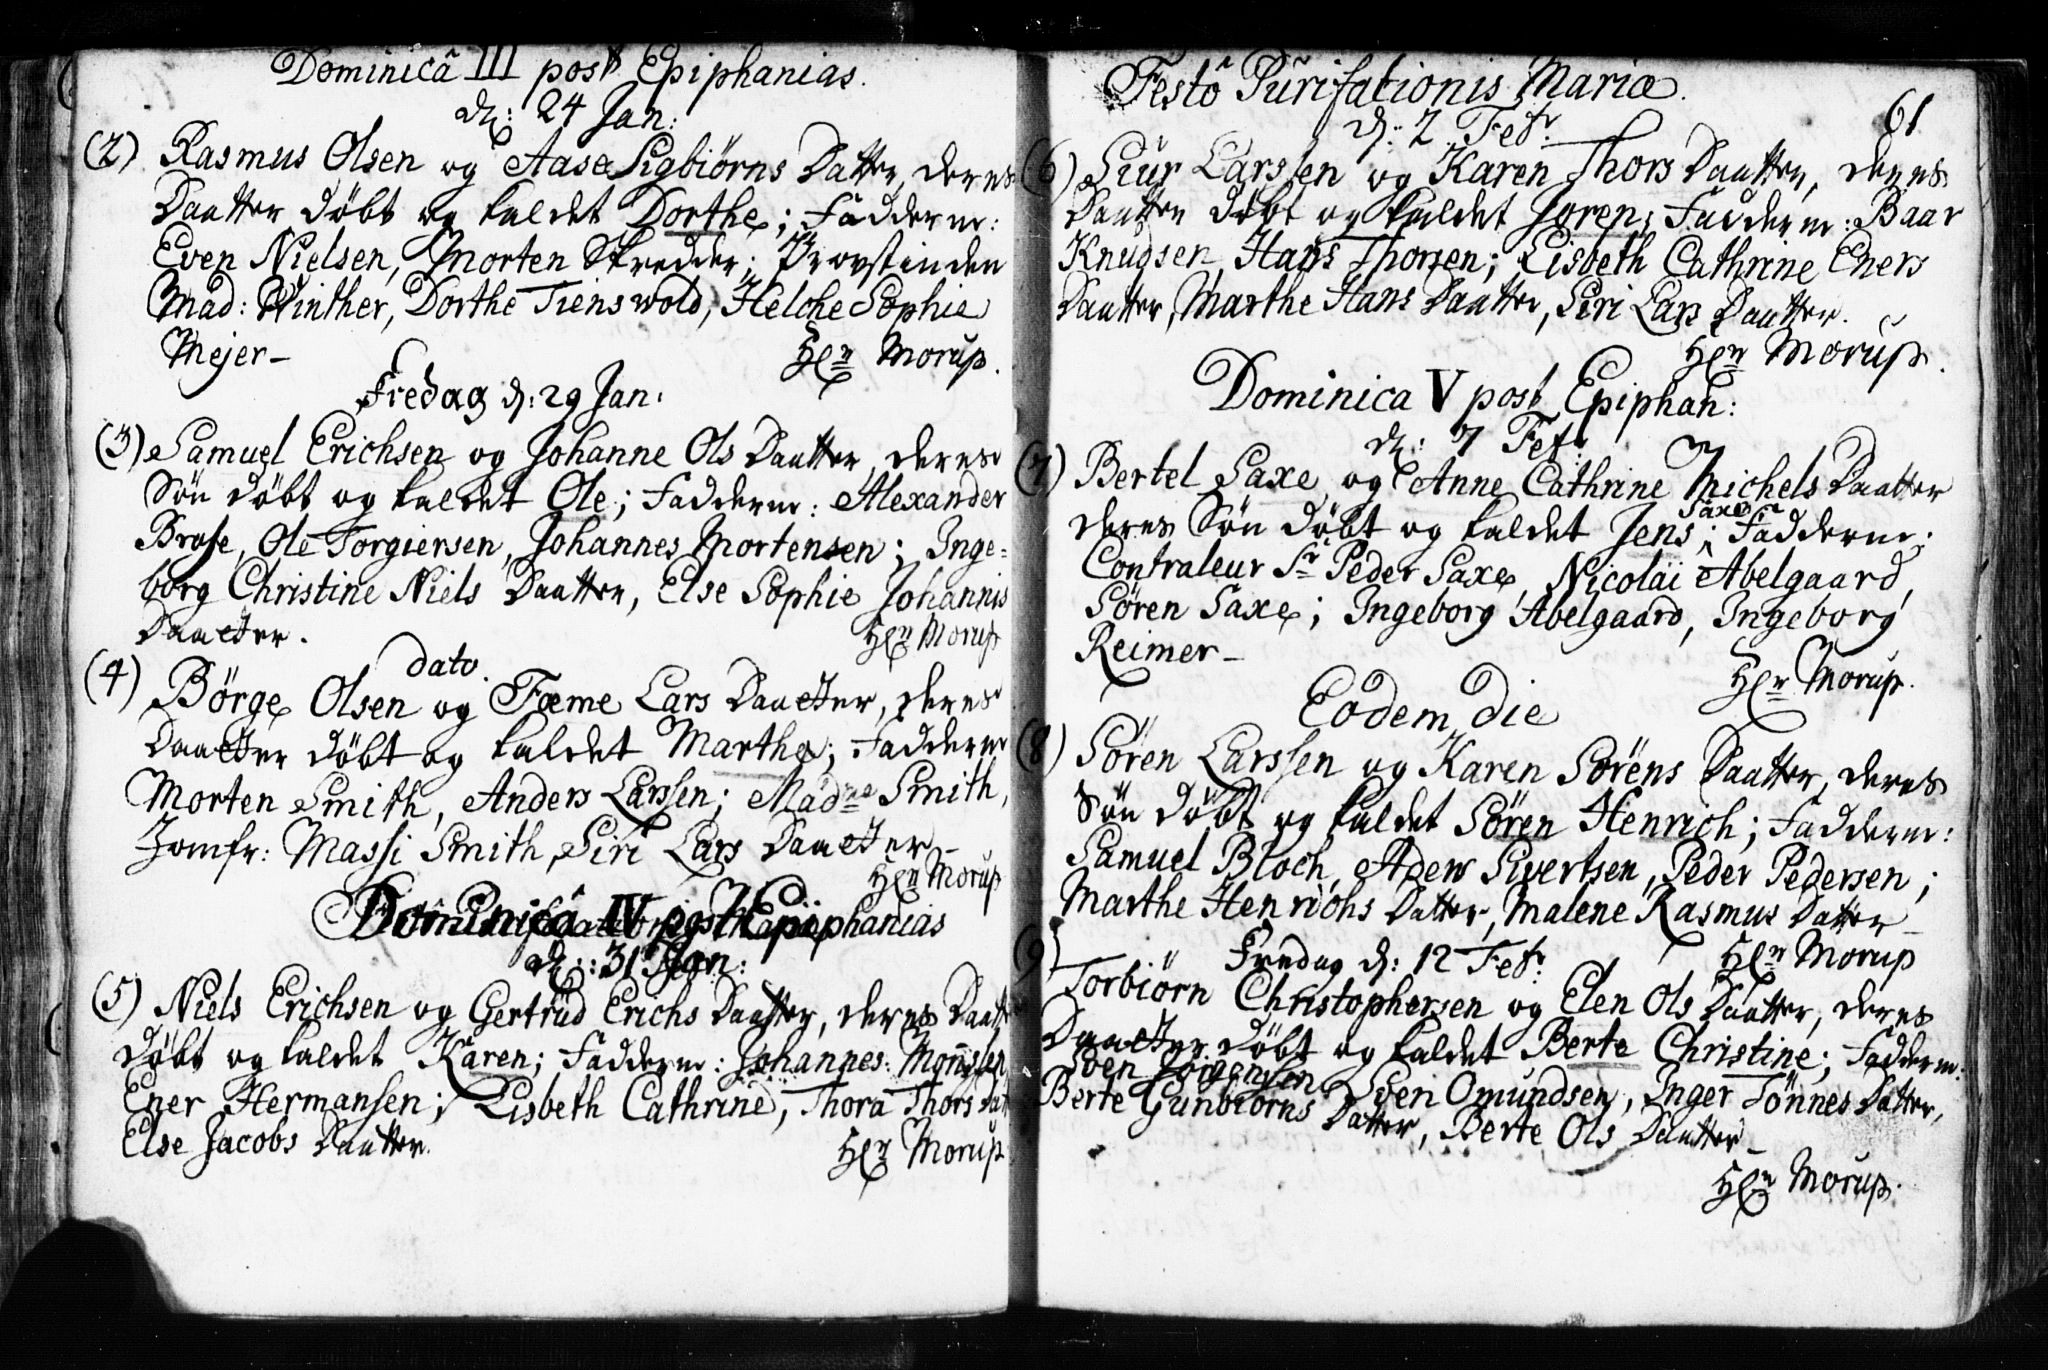 Dominicâ III post Epiphanias.
d: 24 Jan:
(2) Rasmus Olsen og Aase Sigbiørns Datter, deres
Daatter døbt og kaldet Dorthe; Fadderne:
Even Nielsen, Morten Skredder; Provstinden
Mad: Winther, Dorthe Tienswold, Helche Sophie
Mejer– Hr Morup.
Fredag d: 29 Jan:
(3) Samuel Erichsen og Johanne Ols Daatter, deres
Søn døbt og kaldet Ole; Fadderne: Alexander
Brose, Ole Torgiersen, Johannes Mortensen; Inge=
borg Christine Niels Daatter, Else Sophie Johannis
Daatter. Hr Morup
dato.
(4) Børge Olsen og Fæme Lars Daatter, deres
Daatter døbt og kaldet Marthe; Fadderne
Morten Smith, Anders Larssen; Madme Smith,
Jomfr: Massi Smith, Siri Lars Daatter–
Hr Morup
Dominicâ IV post Epiphanias
d: 31 Jan:
(5) Niels Erichsen og Gertrud Erichs Daatter, deres Daatt
døbt og kaldet Karen; Fadderne: Johannes Monssen
Ener Hermansen; Lisbeth Cathrine, Thora Thors Dat
Else Jacobs Daatter. Hr Morup
Festô Purifationis Mariæ.
61
d: 2 Febr:
(6) Siur Larssen og Karen Thors Daatter, deres
Daatter døbt og kaldet Joren; Fadderne: Baar
Knudsen, Hans Thorsen; Lisbeth Cathrine Eners
Daatter, Marthe Hans Daatter, Siri Lars Daatter.
Hr Morup.
Dominica V post Epiphan:
d: 7 Febr:
(7) Bertel Saxe og Anne Cathrine Michels Daatter
deres Søn døbt og kaldet Jens Saxe; Fadderne:
Contraleur Sr Peder Saxe, Nicolai Abelgaard,
Søren Saxe; Ingeborg Abelgaard, Ingeborg
Reimer– Hr Morup.
Eodem die
(8) Søren Larssen og Karen Sørens Daatter, deres
Søn døbt og kaldet Søren Henrich; Fadderne:
Samuel Bloch, Aders Sivertsen, Peder Pedersen;
Marthe Henrichs Datter, Malene Rasmus Datter–
Hr Morup
Fredag d: 12 Febr:
9) Torbiørn Christophersen og Elen Ols Daatter, deres
Daatter døbt og kaldet Berte Christine; Fadderne:
Sven Jørgensen, Sven Omundsen, Inger Tønnes Datter,
Berte Gunbiørns Datter, Berte Ols Daatter–
Hr Morup.